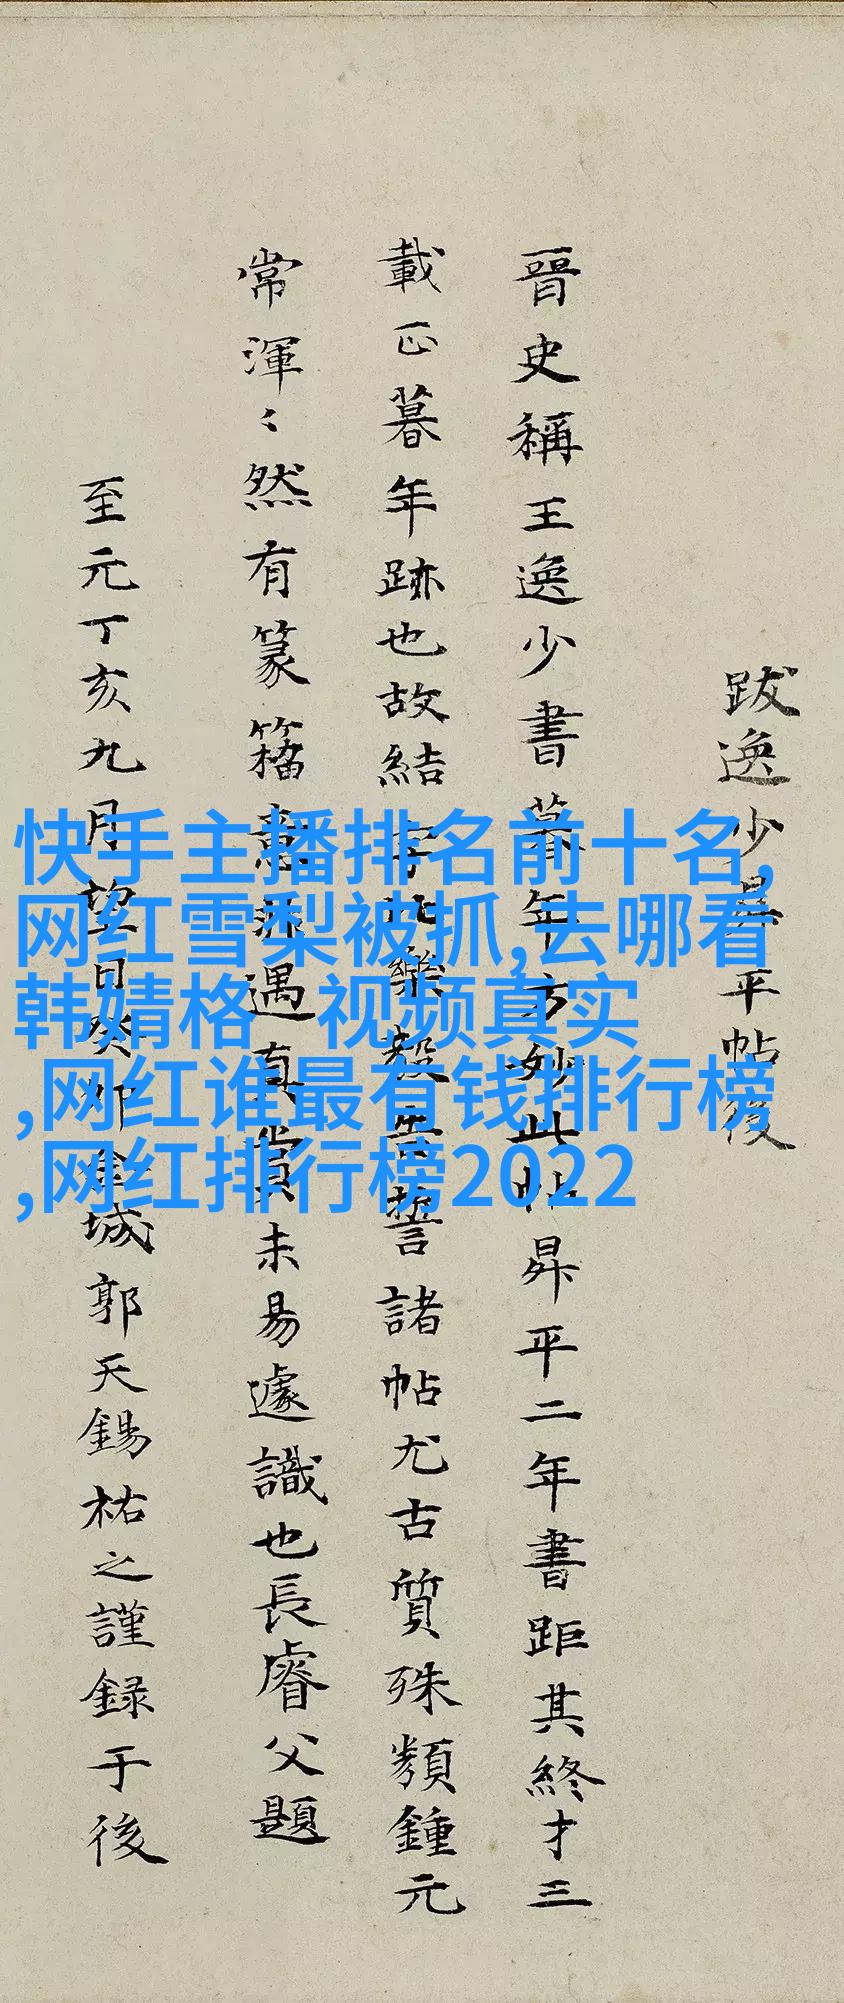 跋逸少昇平帖後
晉史稱王逸少書暮年方妙此帖昇平二年書距其終才三
載正暮年跡也故結字比樂毅告誓諸帖尤古質殊類鍾元
常渾〻然有篆籀意非遇真賞未易遽識也長睿父題
至元丁亥九月望日癸卯金城郭天錫祐之謹録于後
快手主播排名前十名,
网红雪梨被抓,去哪看
韩婧格 视频真实
,网红谁最有钱排行榜
,网红排行榜2022